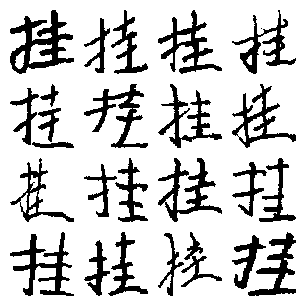 挂挂挂挂
挂挂挂挂
挂挂挂挂
挂挂挂挂